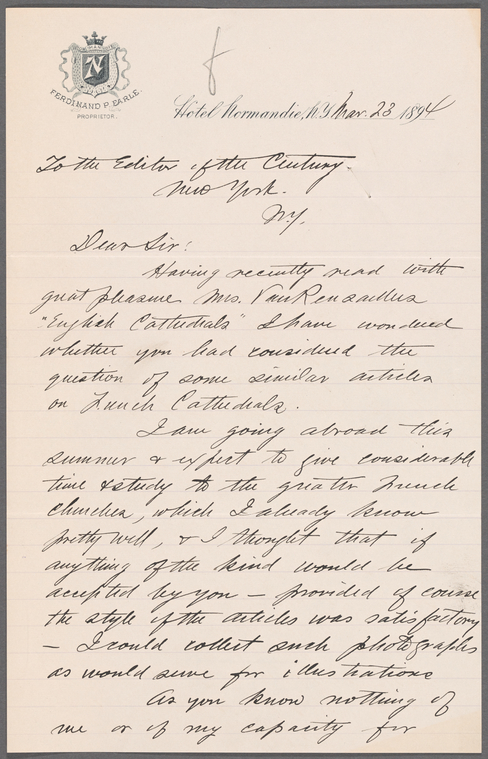 N
FERDINAND P. EARLE.
PROPRIETOR.
Hotel Normandie, N.Y. Mar. 23 1894
To the Editor of the Century.
New York.
N.Y.
Dear Sir:
Having recently read with
great pleasure Mrs. Van Rensaellers
"English Cathedrals" I have wondered
whether you had considered the
question of some similar articles
on French Cathedrals.
I am going abroad this
summer & expect to give considerable
time & study to the greater French
churches, which I already know
pretty well, & I thought that if
anything of the kind would be
accepted by you – provided of course
the style of the articles was satisfactory
– I could collect such photographs
as would serve for illustrations
As you know nothing of
me or of my capacity for